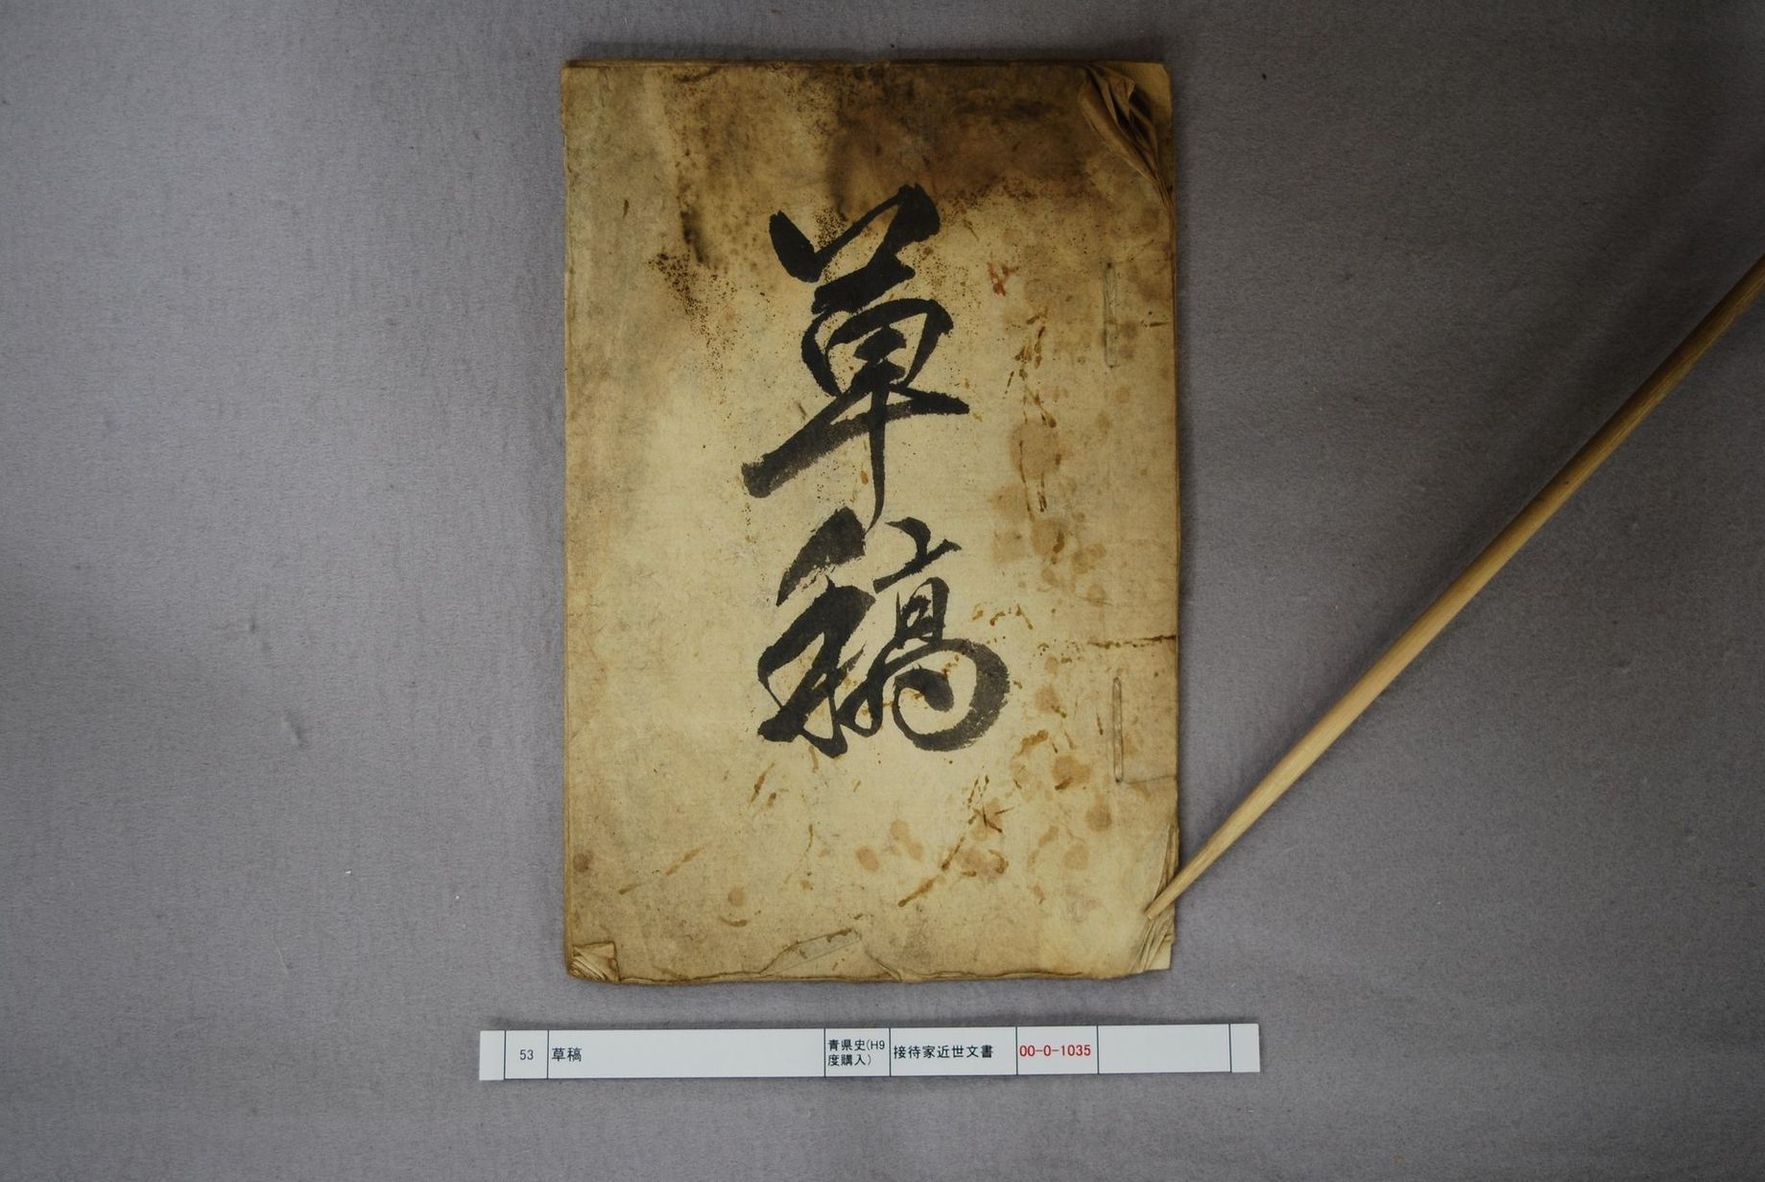 草稿
53
草稿
青県史(H9
度購入)
接待家近世文書
00-0-1035